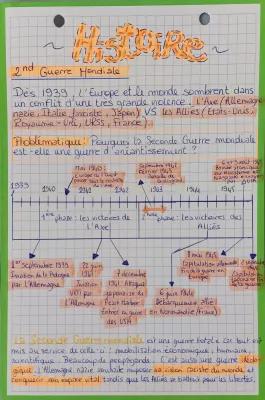 Histoire
2nd Guerre Mondiale
Dès 1939, l'Europe et le monde sombrent dans
un conflit d'une très grande violence. L'Axe (Allemagne
nazie, Italie fasciste, Japon) VS les Alliés (Etats-Unis,
Royaume-Uni, URSS, France).
Problématique: Pourquoi la Seconde Guerre mondiale
est-elle une guerre d'anéantissement?
1939 1940 1941 1942 1943 1944 1945
1ère phase: les victoires de
l'Axe
2ème phase: les victoires des
Alliés
1er Septembre 1939
Invasion de la Pologne
par l'Allemagne
22 juin
1941
Invasion
URSS par
l'Allemagne
7 décembre
1941 Attaque
japonaise de
Pearl Harbor
Entrée en guerre
des USA
6 juin 1944
Débarquement allié
en Normandie (France)
8 mai 1945
Capitulation allemande
Fin de la guerre en
Europe
La Seconde Guerre mondiale est une guerre totale car tout est
mis au service de celle-ci: mobilisation économique, humaine,
scientifique. Beaucoup de propagande. C'est aussi une guerre idéolo-
gique. L'Allemagne nazie souhaite imposer sa vision raciste du monde et
conquérir son espace vital tandis que les Alliés se battent pour les libertés.